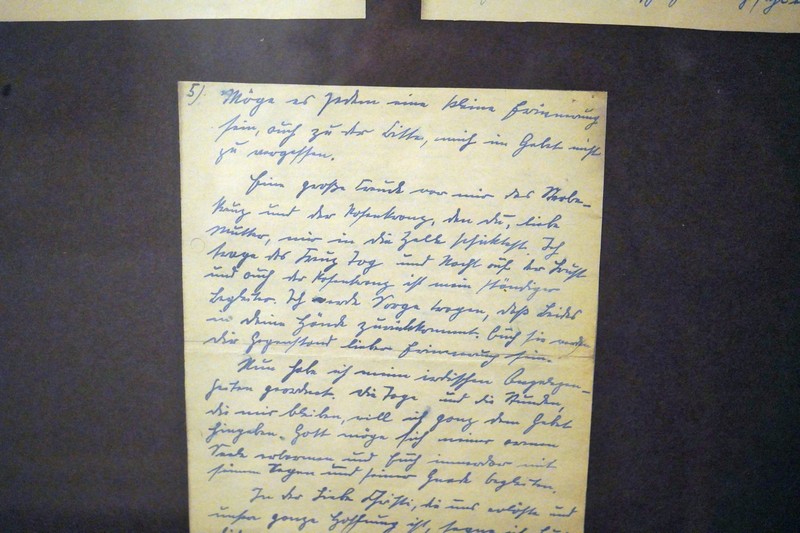 5)
Möge es Jedem eine kleine Erinnerung
sein, auch zu der Bitte, mich im Gebet nicht
zu vergessen.
Eine große Freude war mir das Sterbe-
kreuz und der Rosenkranz, den du, liebe
Mutter, mir in die Zelle schicktest. Ich
trage das Kreuz Tag und Nacht auf der Brust
und auch der Rosenkranz ist mein ständiger
Begleiter. Ich werde Sorge tragen, daß Beides
in deine Hände zurückkommt. Auch sie werden
dir Gegenstand lieber Erinnerung sein.
Nun habe ich meine irdischen Angelegen-
heiten geordnet. Die Tage und die Stunden,
die mir bleiben, will ich ganz dem Gebet
hingeben. Gott möge sich meiner armen
Seele erbarmen und Euch immerdar mit
seinem Segen und seiner Gnade begleiten.
In der Liebe Christi, die uns erlöste und
unsere ganze Hoffnung ist, segne ich Euch